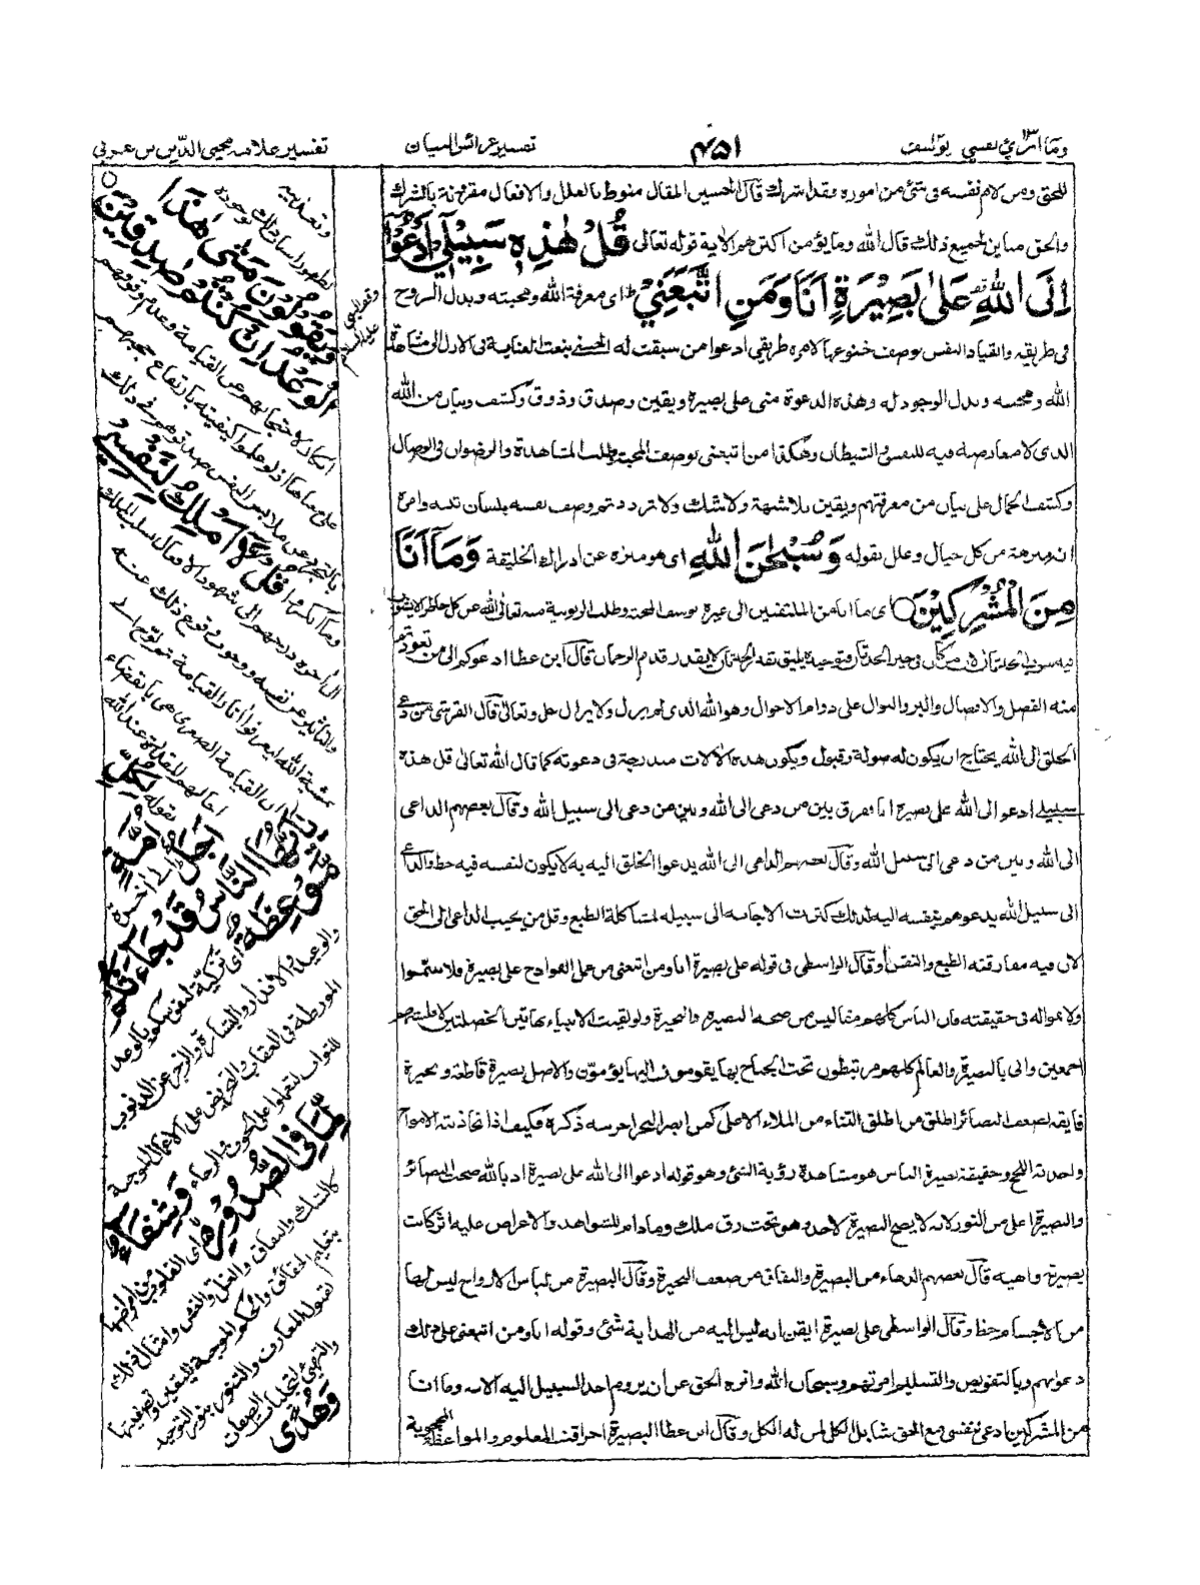 وما ابرئ نفسي يوسف
٤٥١
تفسير عرائس البيان
تفسير علامه محيى الدين بن عربي
للحق ومن لام نفسه في شئ من اموره فقد اشرك قال الحسين المقال منوط بالعلل والافعال مقرونة بالشرك
والحق مباين لجميع ذلك قال الله وما يؤمن اكثرهم الاية قوله تعالى قُلْ هٰذِهٖ سَبِيْلِيْٓ اَدْعُوْٓا
اِلَى اللهِ عَلٰى بَصِيْرَةٍ اَنَا وَمَنِ اتَّبَعَنِيْ ط اى معرفة الله ومحبته وبذل الروح
في طريقه وانقياد النفس بوصف خنوعها لامره طريقي ادعوا من سبقت له الحسنى بنعت العناية في الازل الى مشاهدة
الله ومحبته وبذل الوجود له وهذه الدعوة منى على بصيرة ويقين وصدق وذوق وكشف وبيان من الله
الذى لا معارضة فيه للنفس والشيطان وهكذا من اتبعنى بوصف المحبة وطلب المشاهدة والرضوان في الوصال
وكشف الجمال على بيان من معرفتهم ويقين بلا شبهة ولا شك ولا تردد ثم وصف نفسه بلسان نبيه وامره
ان ينزهه من كل خيال وعلل بقوله وَسُبْحٰنَ اللهِ اى هو منزه عن ادراك الخليقة وَمَآ اَنَا
مِنَ الْمُشْرِكِيْنَ اى ما انا من الملتفتين الى غيره بوصف المحبة وطلب الربوبية منه تعالى الله عن كل خاطر
قال ابن عطا ادعوكم الى من تعودتم
منه الفضل والافضال والبر والنوال على دوام الاحوال وهو الله الذى لم يزل ولا يزال جل وتعالى قال القرشي من دعى
الخلق الى الله يحتاج ان يكون له صولة وقبول ويكون هذه الآلات مندرجة في دعوته كما قال الله تعالى قل هذه
سبيلي ادعو الى الله على بصيرة انا وفرق بين من دعى الى الله وبين من دعى الى سبيل الله وقال بعضهم الداعى
الى الله وبين من دعى الى سبيل الله وقال بعضهم الداعى الى الله يدعوا الخلق اليه به لا يكون لنفسه فيه حظ والداعى
الى سبيل الله يدعوهم بنفسه اليه لذلك كثرت الاجابة الى سبيله لمشاكلة الطبع وقل من يجيب الداعى الى الحق
لان فيه مفارقته الطبع والنفس وقال الواسطى في قوله على بصيرة انا ومن اتبعنى من على الفوادح على بصيرة فلا
في حقيقته فان الناس كلهم مفاليس من صحة البصيرة والحيرة ولو لقيت الانبياء بهاتين الخصلتين
اجمعين وانى بالبصيرة والعالم كلهم مرتبطون تحت الجناح بها يقومون واليها يؤمّون والاصل بصيرة قاطعة وحيرة
اضعف البصائر اطلق من اطلق الثناء من الملاء الاعلى كمن ابصر البحر اخرسه ذكره فكيف اذا تجاذبته الامواج
واخذته اللجج وحقيقة بصيرة الناس هو مشاهدة رؤية الشئ وهو قوله ادعوا الى الله على بصيرة اذ بالله صحت البصائر
والبصيرة اعلى من النور لانه لا يصح البصيرة لاحد وهو تحت رق ملك وما دام للشواهد والاعراض عليه اثر كانت
بصيرته واهية قال بعضهم الدهاء من البصيرة والنفاق من ضعف البحيرة وقال البصيرة من لباس الارواح ليس لها
من الاجسام حظ وقال الواسطى على بصيرة ايقن انه ليس اليه من الهداية شئ وقوله انا ومن اتبعنى على ذلك
دعوتهم وبالتفويض والتسليم امرتهم وسبحان الله وانزه الحق عن ان يروم احد السبيل اليه الا به وما انا
من المشركين ادعى لنفسى مع الحق شيئا بل الكل لمن له الكل وقال ابن عطا البصيرة احرقت المعلوم والمواعظ
وقول النبي عليه السلام
وَيَقُوْلُوْنَ مَتٰى هٰذَا
الْوَعْدُ اِنْ كُنْتُمْ صٰدِقِيْنَ
انكار لاحتجابهم عن القيامة وعدم وقوفهم
على معناها اذ لو علموا كيفيته بارتفاع حجبهم
بالتجرد عن ملابس النفس صدقوهم في ذلك
وما انكروا قُلْ لَّآ اَمْلِكُ لِنَفْسِيْ
الى آخره درجهم الى شهود الافعال بسلب الملك
والتاثير عن نفسه ووجوب وقوع ذلك عنه
بمشية الله ليعرفوا اثار القيامة ثم لوّح الى
ان القيامة الصغرى هى بانقضاء
اجالهم المقدرة عند الله
بقوله لِكُلِّ
اُمَّةٍ اَجَلٌ الى آخره
يٰٓاَيُّهَا النَّاسُ قَدْ جَآءَتْكُمْ
مَّوْعِظَةٌ اى تزكية لنفوسكم بالوعد
والوعيد والانذار والبشارة والزجر عن الذنوب
المورطة في العقاب والتحريض على الاعمال الموجبة
للثواب لتعملوا على الخوف والرجاء وَشِفَآءٌ
لِّمَا فِى الصُّدُوْرِ اى القلوب من امراضها
كالشك والنفاق والغل والغش وامثال ذلك
بتعليم الحقائق والحكم الموجبة لليقين وتصفيتها
لقبول المعارف والتنور بنور التوحيد
والتهيئ لتجليات الصفات
وَهُدًى